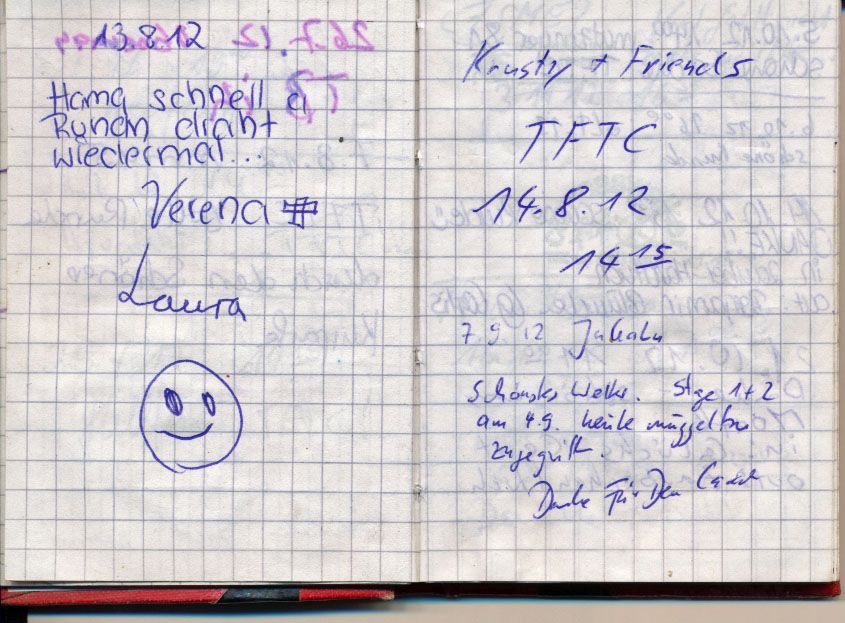 13.8.12
Hama schnell a
Rundn draht
wiedermal...
Verena #
Laura
Krusty + Friends
TFTC
14.8.12
14 15
7.9.12
Schönstes Wetter. Stage 1+2
am 4.9. heute muggelfrei
zugegriffen.
Danke Für Den Cache